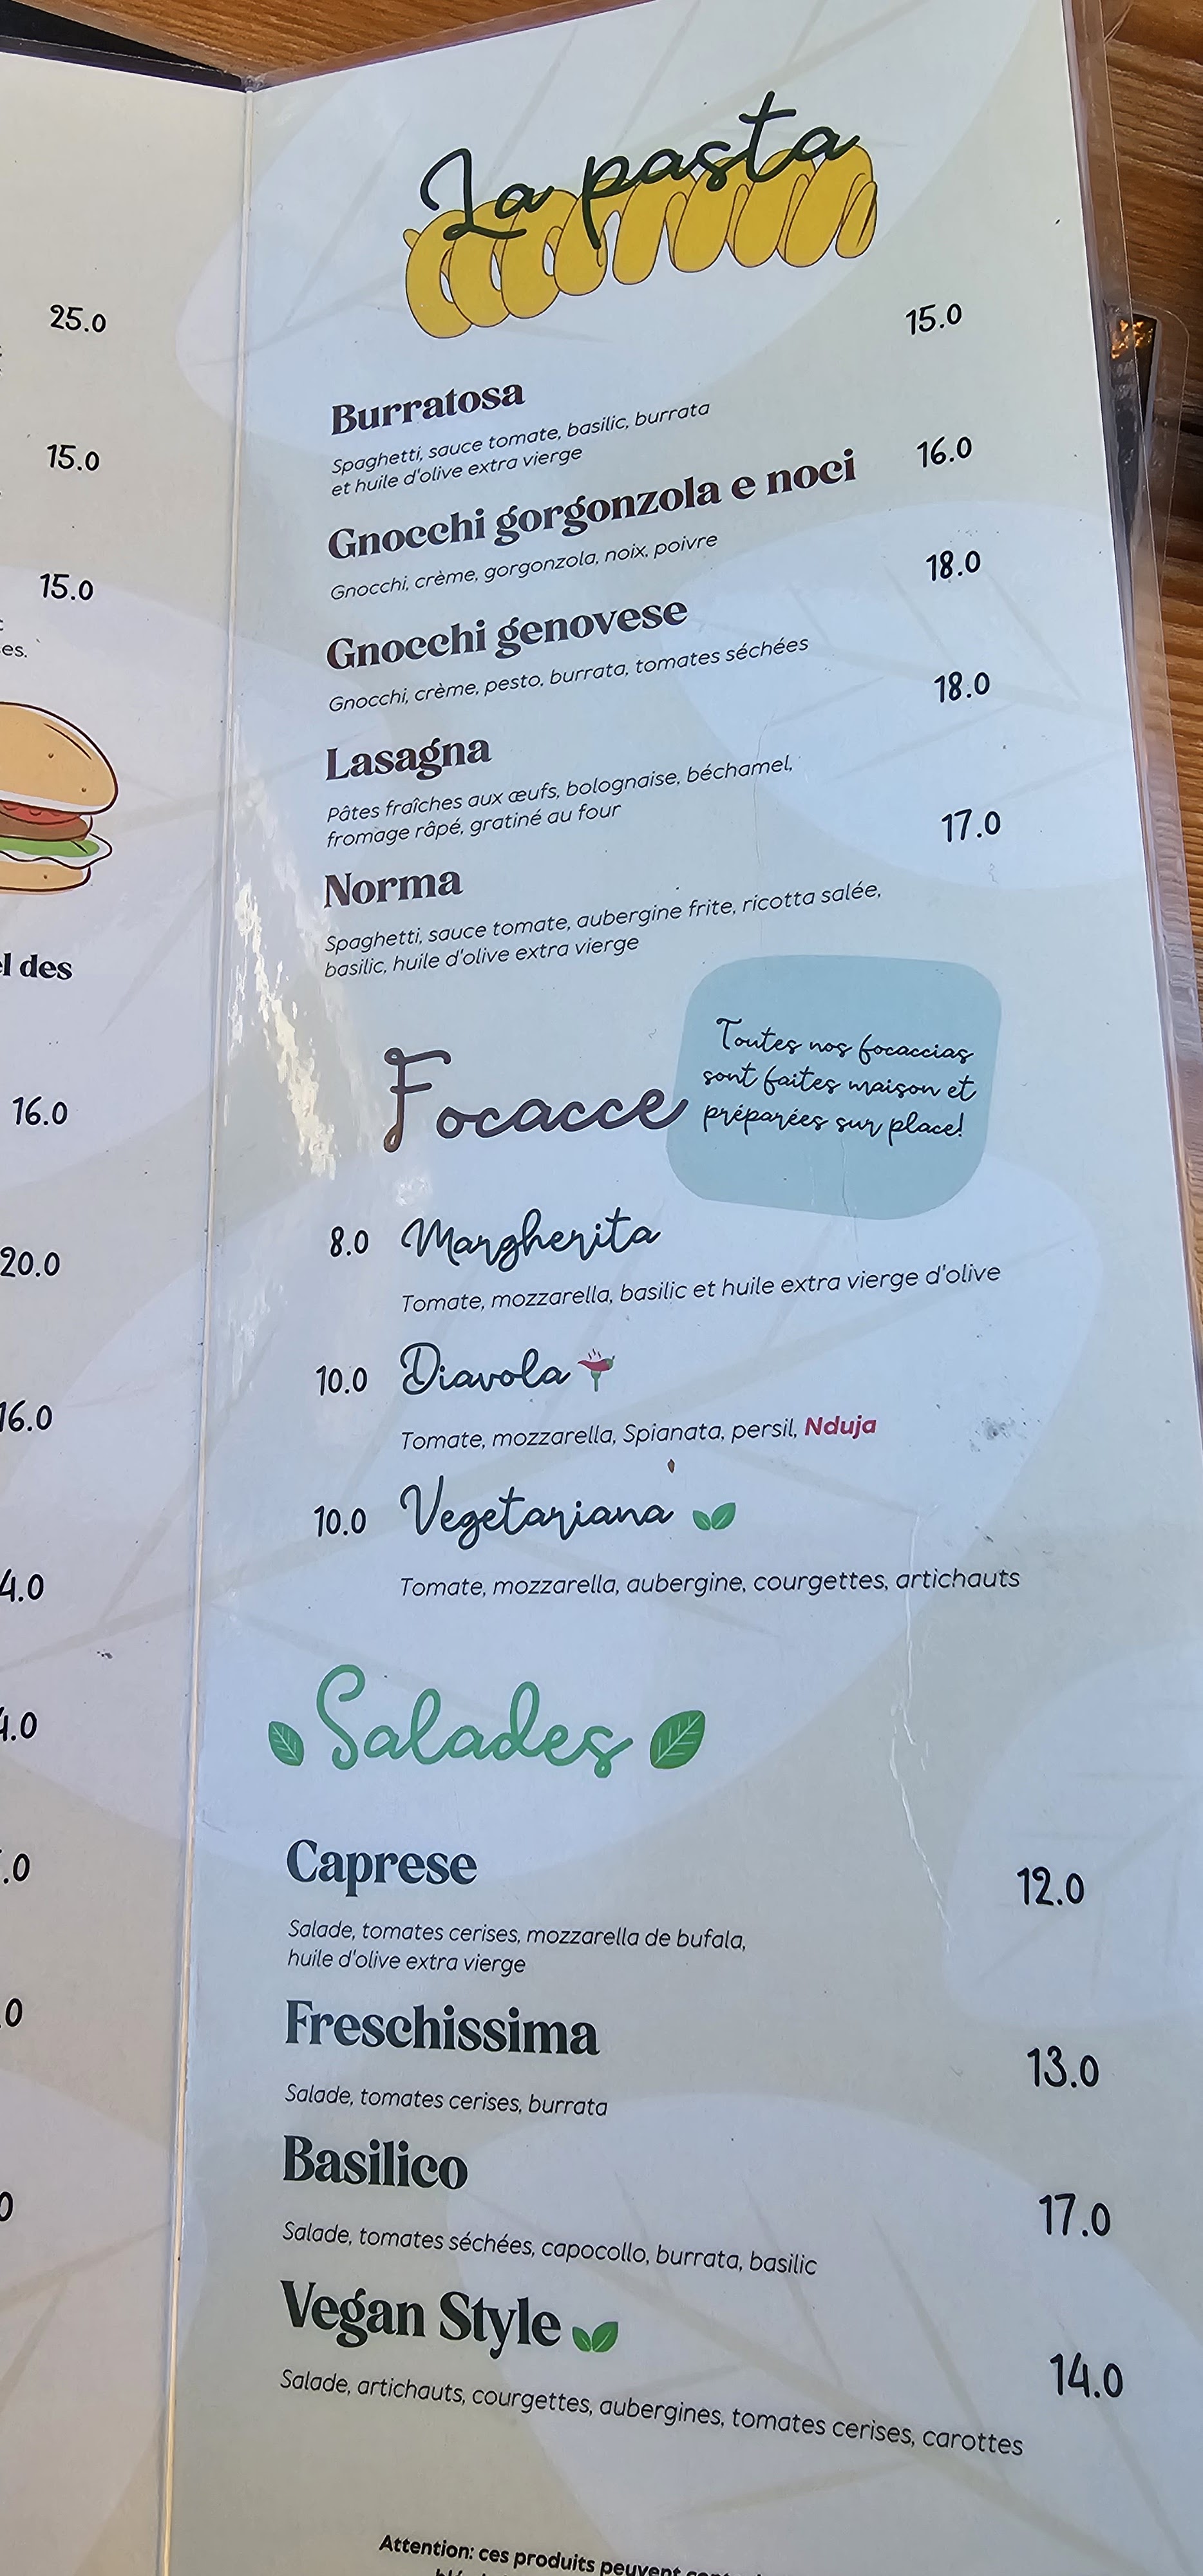 25.0
15.0
15.0
es.
l des
16.0
20.0
16.0
4.0
4.0
.0
.0
0
La pasta
15.0
Burratosa
Spaghetti, sauce tomate, basilic, burrata
et huile d'olive extra vierge
16.0
Gnocchi gorgonzola e noci
Gnocchi, crème, gorgonzola, noix, poivre
18.0
Gnocchi genovese
Gnocchi, crème, pesto, burrata, tomates séchées
18.0
Lasagna
Pâtes fraîches aux œufs, bolognaise, béchamel,
fromage râpé, gratiné au four
17.0
Norma
Spaghetti, sauce tomate, aubergine frite, ricotta salée,
basilic, huile d'olive extra vierge
Focacce
Toutes nos focaccias
sont faites maison et
préparées sur place!
8.0 Margherita
Tomate, mozzarella, basilic et huile extra vierge d'olive
10.0 Diavola
Tomate, mozzarella, Spianata, persil, Nduja
10.0 Vegetariana
Tomate, mozzarella, aubergine, courgettes, artichauts
Salades
Caprese 12.0
Salade, tomates cerises, mozzarella de bufala,
huile d'olive extra vierge
Freschissima 13.0
Salade, tomates cerises, burrata
Basilico 17.0
Salade, tomates séchées, capocollo, burrata, basilic
Vegan Style 14.0
Salade, artichauts, courgettes, aubergines, tomates cerises, carottes
Attention: ces produits peuvent